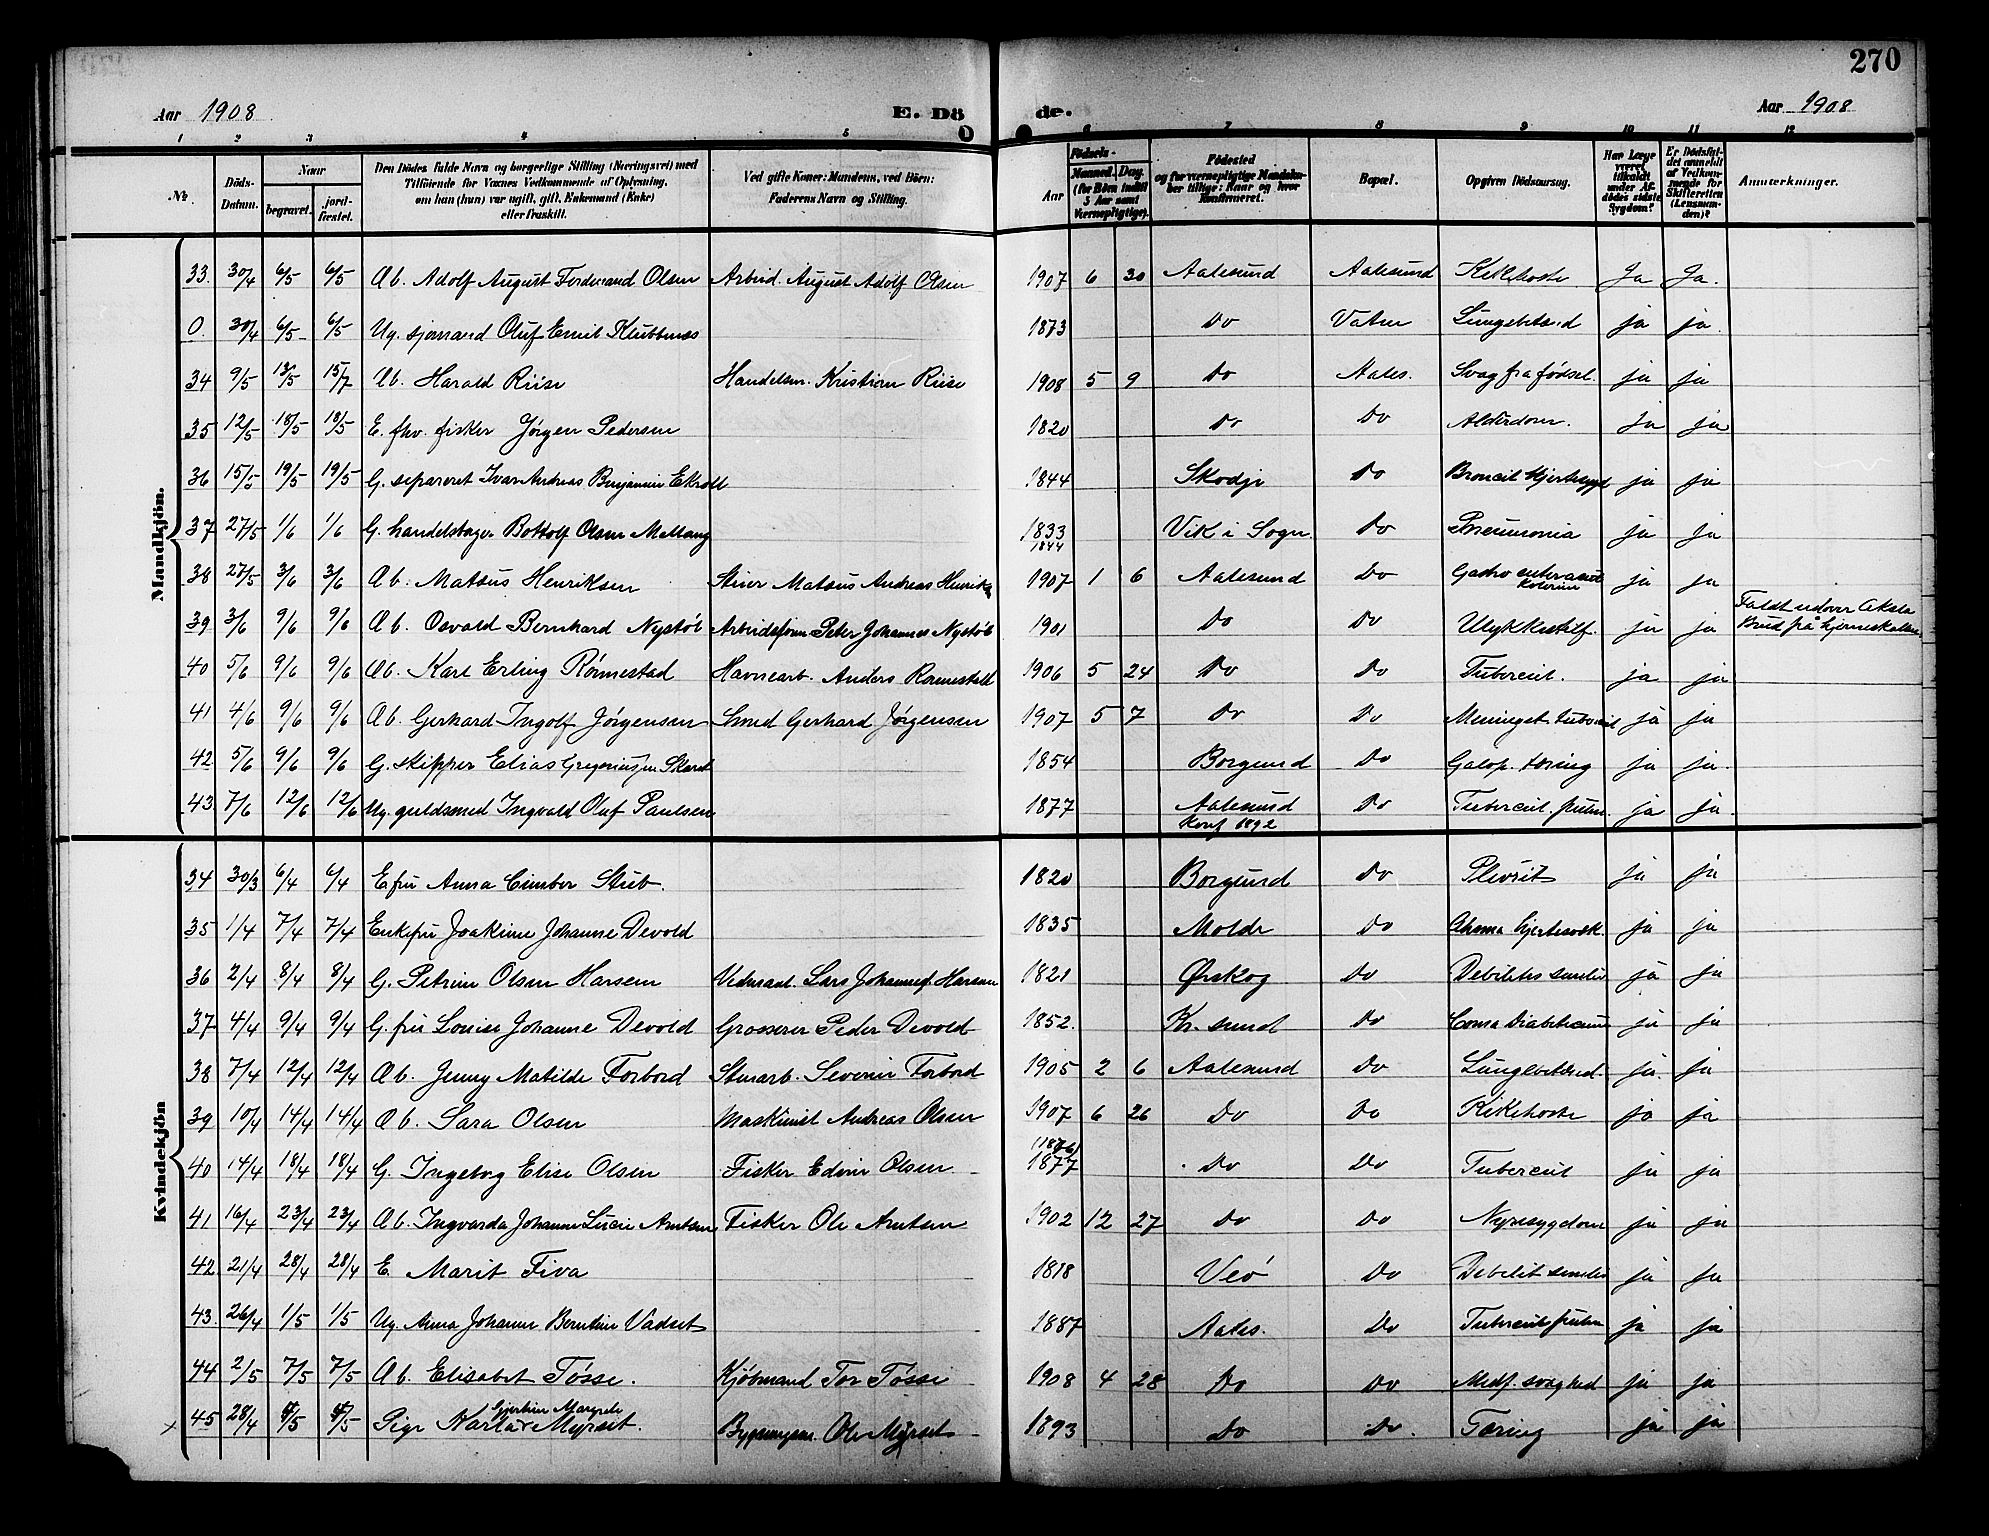 270
Aar 1908 E. Dö de. Aar 1908
1 2 3 4 5 6 7 8 9 10 11 12
No. Döds-Datum. Naar begravet. jord-fæstet. Den Dödes fulde Navn og borgerlige Stilling (Næringsvei) med Tilföiende for Voxnes Vedkommende af Oplysning, om han (hun) var ugift, gift, Enkemand (Enke) eller fraskilt. Ved gifte Koner: Mandens, ved Börn: Faderens Navn og Stilling. Aar Födsels- Maaned. Dag. (for Börn indtil 5 Aar samt Værnepligtige). Födested og for værnepligtige Mandskaber tillige: Naar og hvor konfirmeret. Bopæl. Opgiven Dödsaarsag. Har Læge været tilkaldt under Afdödes sidste Sygdom? Er Dödsfaldet anmeldt af Vedkommende for Skifteretten (Lensmanden)? Anmærkninger.
Mandkjön.
33. 30/4 6/5 6/5 Ab. Adolf August Ferdinand Olsen Arbeid. August Adolf Olsen 1907 6 30 Aalesund Aalesund Kikhoste Ja Ja.
0. 30/4 6/5 6/5 Ug. sjømand Oluf Emil Klubbenes 1873 Do Vatne Lungebetænd ja ja.
34 9/5 13/5 15/7 Ab. Harald Riise Handelsm. Kristian Riise 1908 5 9 Do Aales. Svag fra fødsel. ja ja
35 12/5 18/5 18/5 E. fhv. fisker Jørgen Pedersen 1820 Do Do Alderdom. ja ja
36 15/5 19/5 19/5 G. separeret Ivar Andreas Benjamin Ekroll 1844 Skodje Do Broncit Hjertesygd ja ja
37 27/5 1/6 1/6 G. handelsbager Bottolf Olsen Mellang 1833 1844 Vik i Sogn Do Pneumonia ja ja
38 27/5 3/6 3/6 Ab. Matæus Henriksen Stuer Matæus Andreas Henriks 1907 1 6 Aalesund Do Gastro ja ja
39 3/6 9/6 9/6 Ab. Osvald Bernhard Nystøl Arbeidsform Peter Johannes Nystøl 1901 Do Do Ulykkestilf. ja ja Faldt udover Aksla Brud på hjerneskallen
40 5/6 9/6 9/6 Ab. Karl Erling Rønnestad Havnearb. Anders Rønnestad 1906 5 24 Do Do Tubercul. ja ja
41 4/6 9/6 9/6 Ab. Gerhard Ingolf Jørgensen Smed Gerhard Jørgensen 1907 5 7 Do Do Meninget. tubercul ja ja
42 5/6 9/6 9/6 G. skipper Elias Gregoriussen Skaret 1854 Borgund Do Galop. tæring ja ja.
43. 7/6 12/6 12/6 Ug. guldsmed Ingvald Oluf Paulsen 1877 Aalesund Konf 1892 Do Tubercul. pulm. ja ja.
Kvindekjön
34 30/3 6/4 6/4 E fru Anna Cimber Stub. 1820 Borgund Do Plevrit ja ja
35 1/4 7/4 7/4 Enkefru Joakime Johanne Devold 1835 Molde Do ja ja
36 2/4 8/4 8/4 G. Petrine Olsen Harsem Lars Johannes. Harsem 1821 Ørskog Do Debilitas senilis ja ja
37 4/4 9/4 9/4 G. fru Louise Johanne Devold Grosserer Peder Devold 1852. Kr. sund Do Coma Diabeticum ja ja
38 7/4 12/4 12/4 Ab. Jenny Matilde Forbord Stuearb. Severin Forbord 1905 2 6 Aalesund Do Lungebetænd. ja. ja
39 10/4 14/4 14/4 Ab. Sara Olsen Maskinist Andreas Olsen 1907 6 26 Do Do Kikhoste ja ja
40 14/4 18/4 18/4 G. Ingeborg Elise Olsen Fisker Edvin Olsen (1876) 1877 Do Do Tubercul ja ja
41 16/4 23/4 23/4 Ab. Ingvarda Johanne Lucie Arntsen Fisker Ole Arntsen 1902 12 27 Do Do Nyresygdom ja ja
42 21/4 28/4 28/4 E. Marit Fiva 1818 Veø Do Debilit senilis ja ja
43. 26/4 1/5 1/5 Ug. Anna Johanne Berntine Vadset 1887 Aales. Do Tubercul pulm ja ja
44 2/5 7/5 7/5 Ab. Elisabet Tøsse. Kjøbmand Tor Tøsse 1908 4 28 Do Do Medf. svaghed ja ja
x 45 28/4 /5 /5 Pige Marta Gjertine Margrete Myrset. Bygningssn. Ole Myrset 1893 Do Do. Tæring ja ja